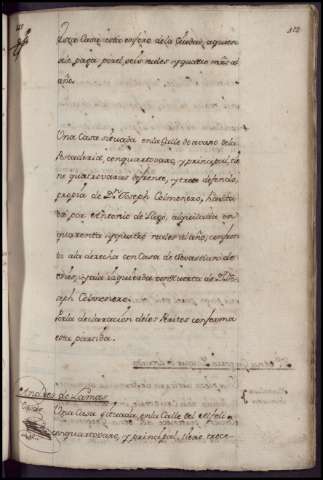 Esta Casa está en foro de la Ciudad, a quien
se le paga por el, seis reales y quatro mrs. al
año.
Una Casa situada en la Calle de avajo de la
Herreria, con quarto vajo, y principal, tie
ne quatro varas de frente, y trece de fondo,
propia de Dn. Joseph Colmenero, havita
da por Antonio de Lago, alquilada en
quarenta y quatro reales al año, confron
ta a la derecha con Casa de Sevastian de
y a la izquierda con Huerta de Dn. Jo
seph Colmenero
Por la declaracion de los Peritos conforma
esta partida.
Andres de Lamas
Una Casa situada, en la Calle del
con quarto vajo, y principal, tiene trece